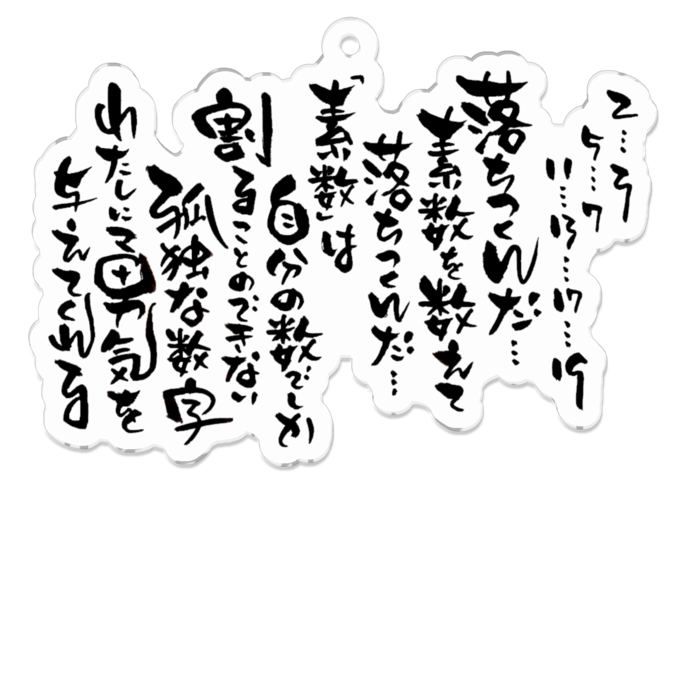 2…3
5…7
11…13…17…19
落ちつくんだ…
素数を数えて
落ちつくんだ…
「素数」は
自分の数でしか
割ることのできない
孤独な数字
わたしに勇気を
与えてくれる